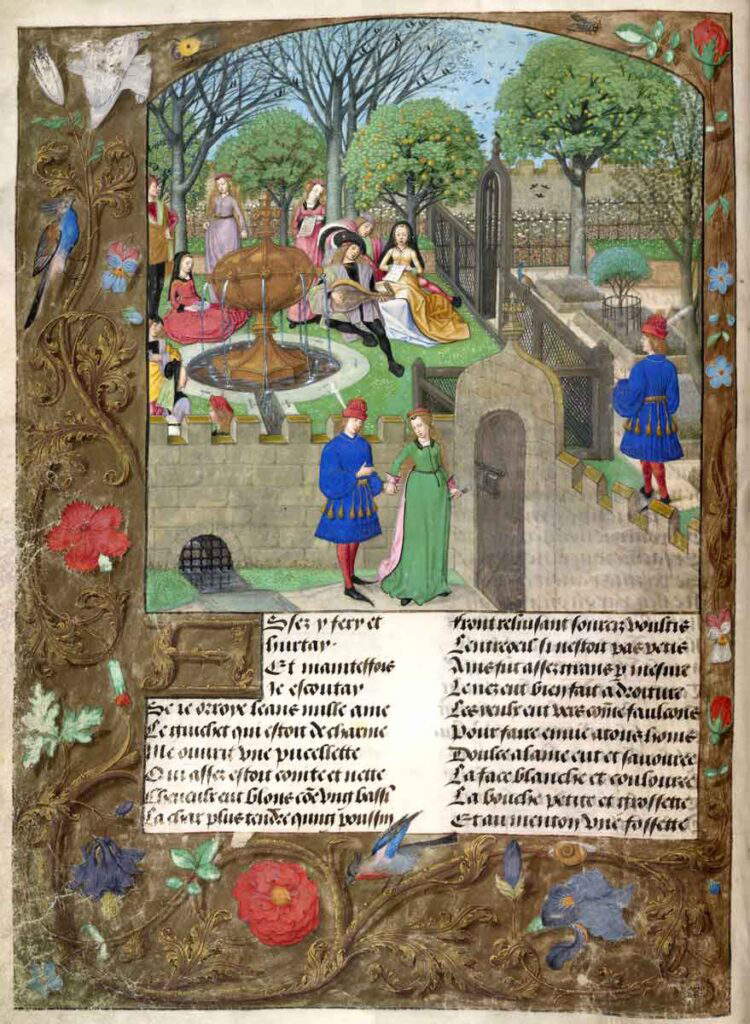 Assez y fery et
hurtay·
Et mainteffois
Je escoutay
Se ie orroye leans nulle ame
Le guichet qui estoit de charme
Me ouurit vne pucellette
Qui assez estoit cointe et nette
Cheueulx eut blons cõe vng bassī
La char plus tendre qung poussin
Front reluisant sourcis voultis
Lentreoeil si nestoit pas petis
Ains fut assez grans p mesure
Le nez eut bien fait a droiture
Les yeulx eut vers cõme faulcons
Pour faire enuie a tous homs
Doulce alaine eut et sauouree
La face blanche et coulouree
La bouche petite et grossette
Et au menton vne fossette